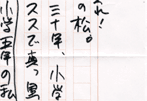 れ!
の松。
三十年、小学
ススで真っ黒
小学五年の私